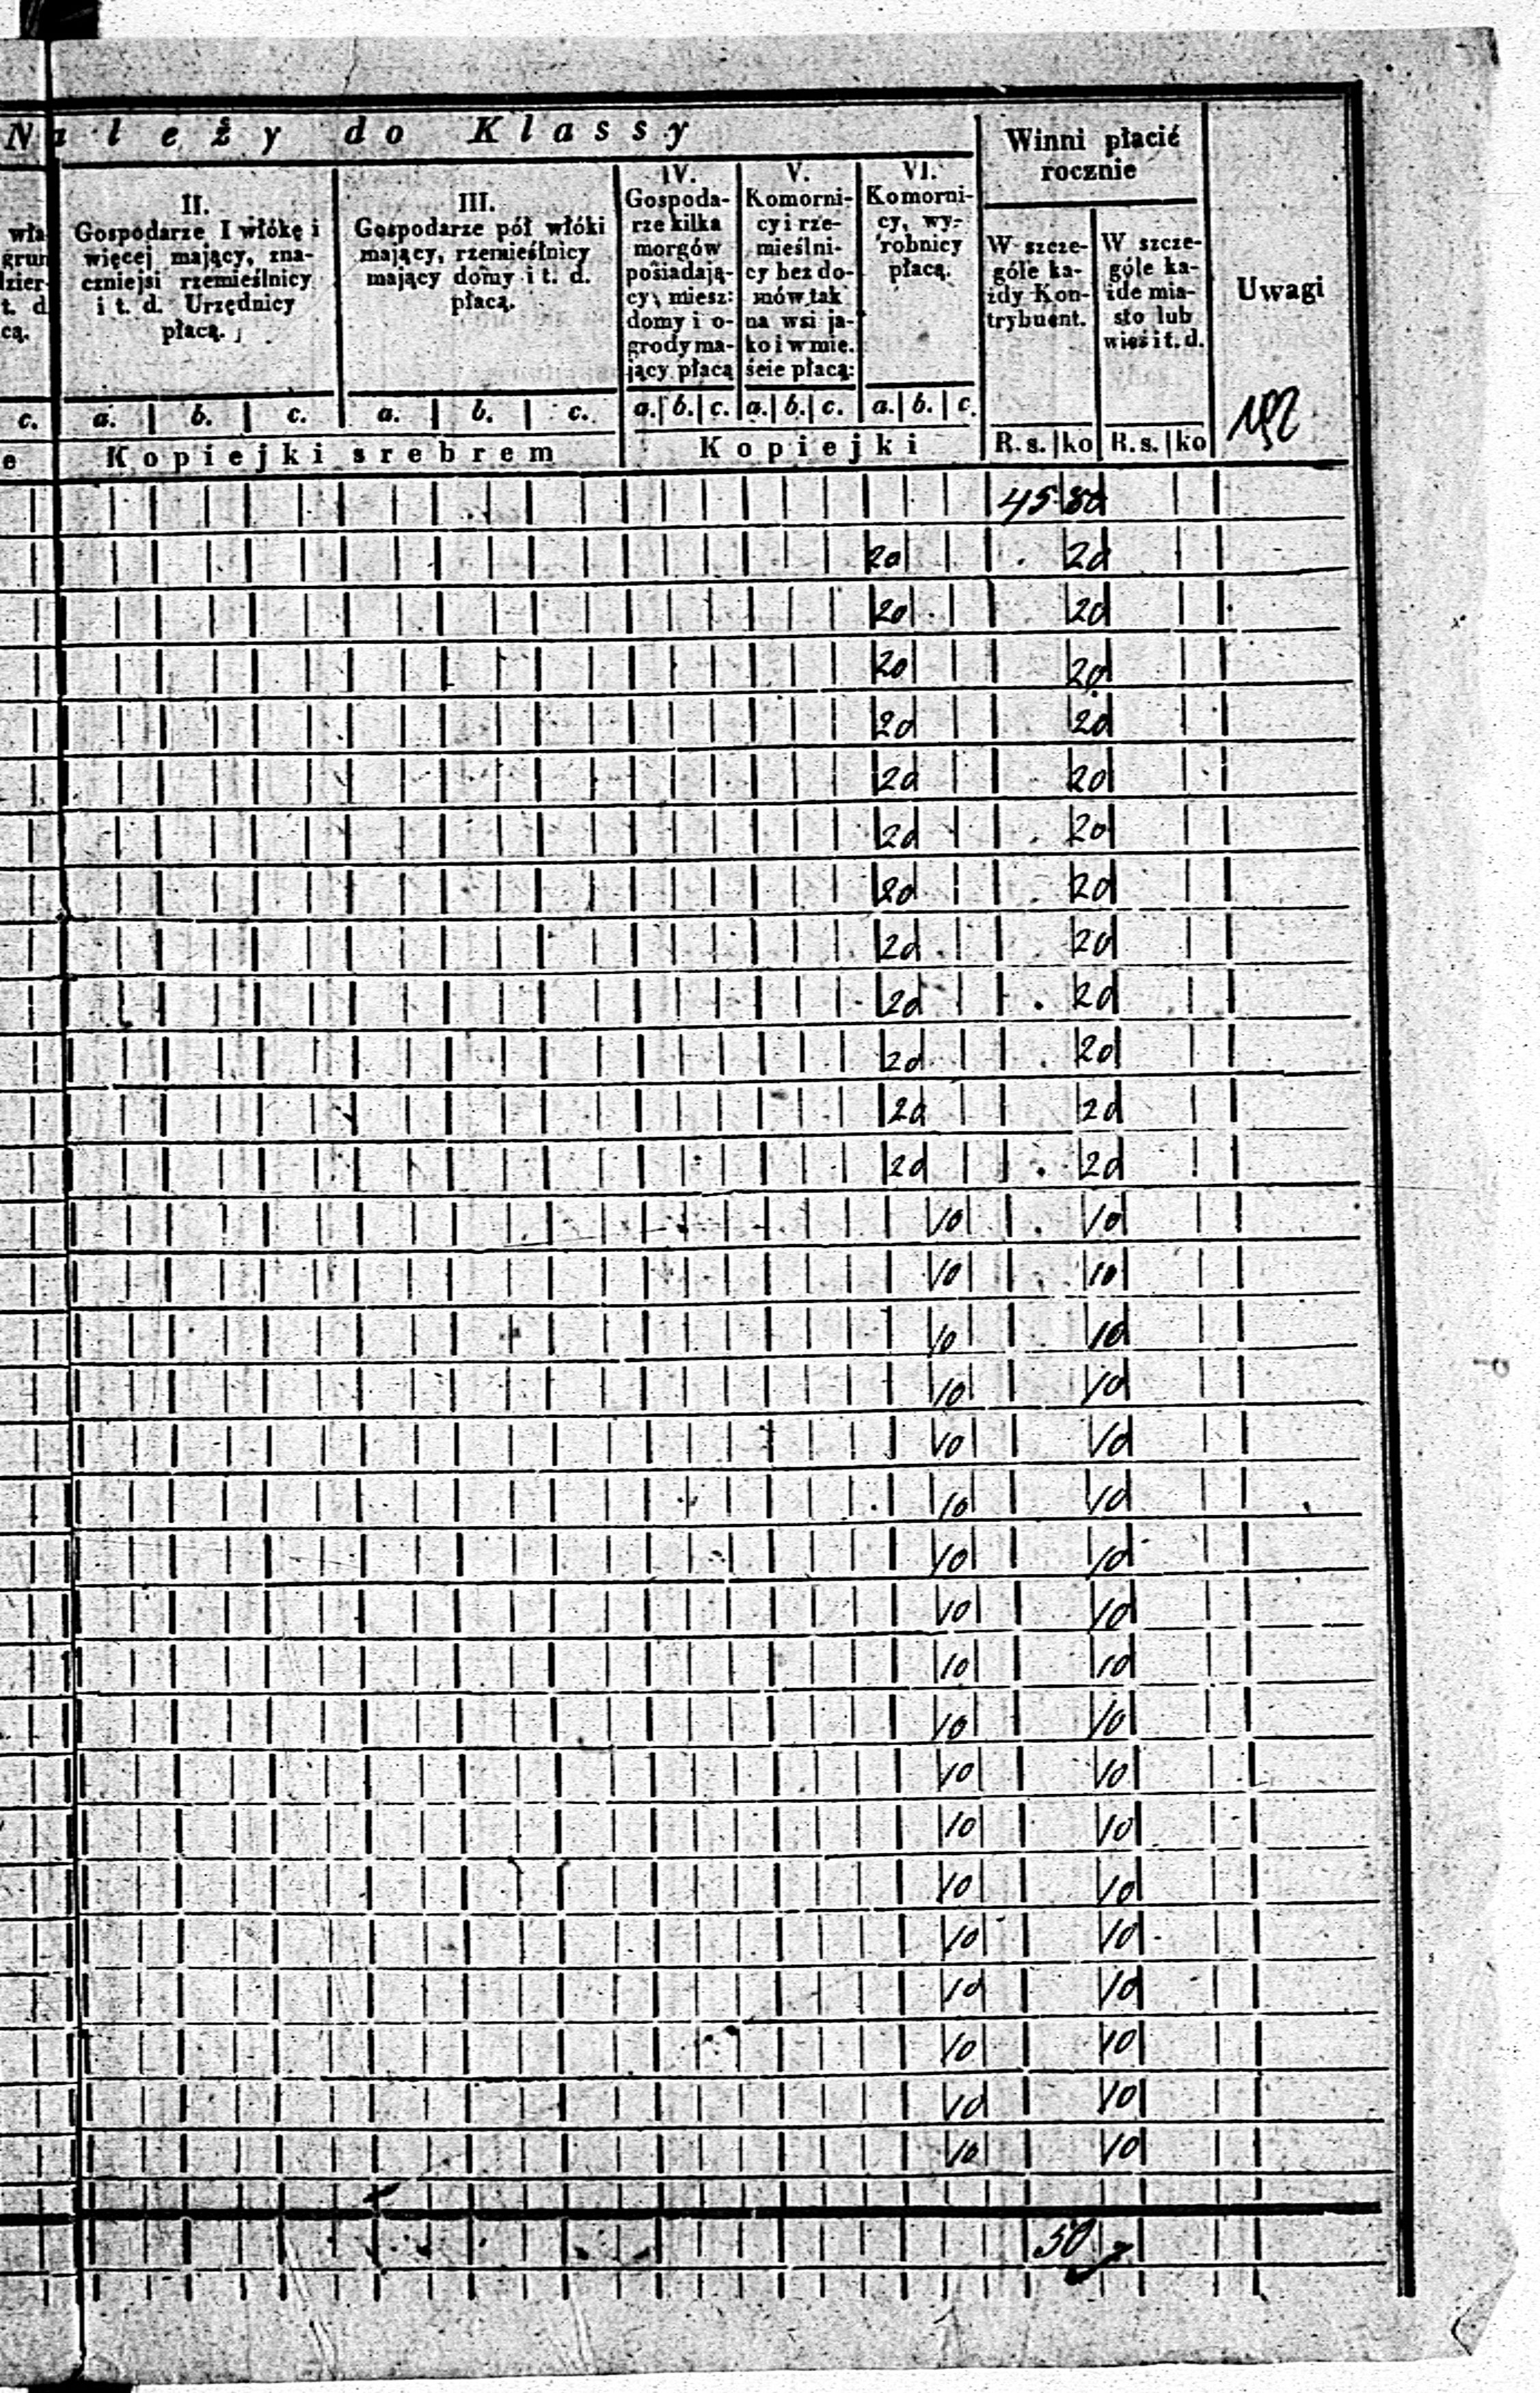 Należy do Klassy
Winni płacić
rocznie
Uwagi
wła
grun
dzier-
t. d
cą.
II.
Gospodarze I włókę i
więcej mający, zna-
czniejsi rzemieślnicy
i t. d. Urzędnicy
płacą.
III.
Gospodarze pół włóki
mający, rzemieślnicy
mający domy i t. d.
płacą.
IV.
Gospoda-
rze kilka
morgów
posiadają-
cy, miesz:
domy i o-
grody ma-
jący płacą
V.
Komorni-
cy i rze-
mieślni-
cy bez do-
mów tak
na wsi ja-
ko i w mie.
ście płacą:
VI.
Komorni-
cy, wy-
robnicy
płacą.
W szcze-
góle ka-
żdy Kon-
trybuent.
W szcze-
góle ka-
żde mia-
sto lub
wieś i t. d.
c. a. b. c. a. b. c. a. b. c. a. b. c. a. b. c.
e Kopiejki srebrem Kopiejki R. s. ko R. s. ko
45 80
20 20
20 20
20 20
20 20
20 20
20 20
20 20
20 20
20 20
20 20
20 20
20 20
10 10
10 10
10 10
10 10
10 10
10 10
10 10
10 10
10 10
10 10
10 10
10 10
10 10
10 10
10 10
10 10
10 10
10 10
50